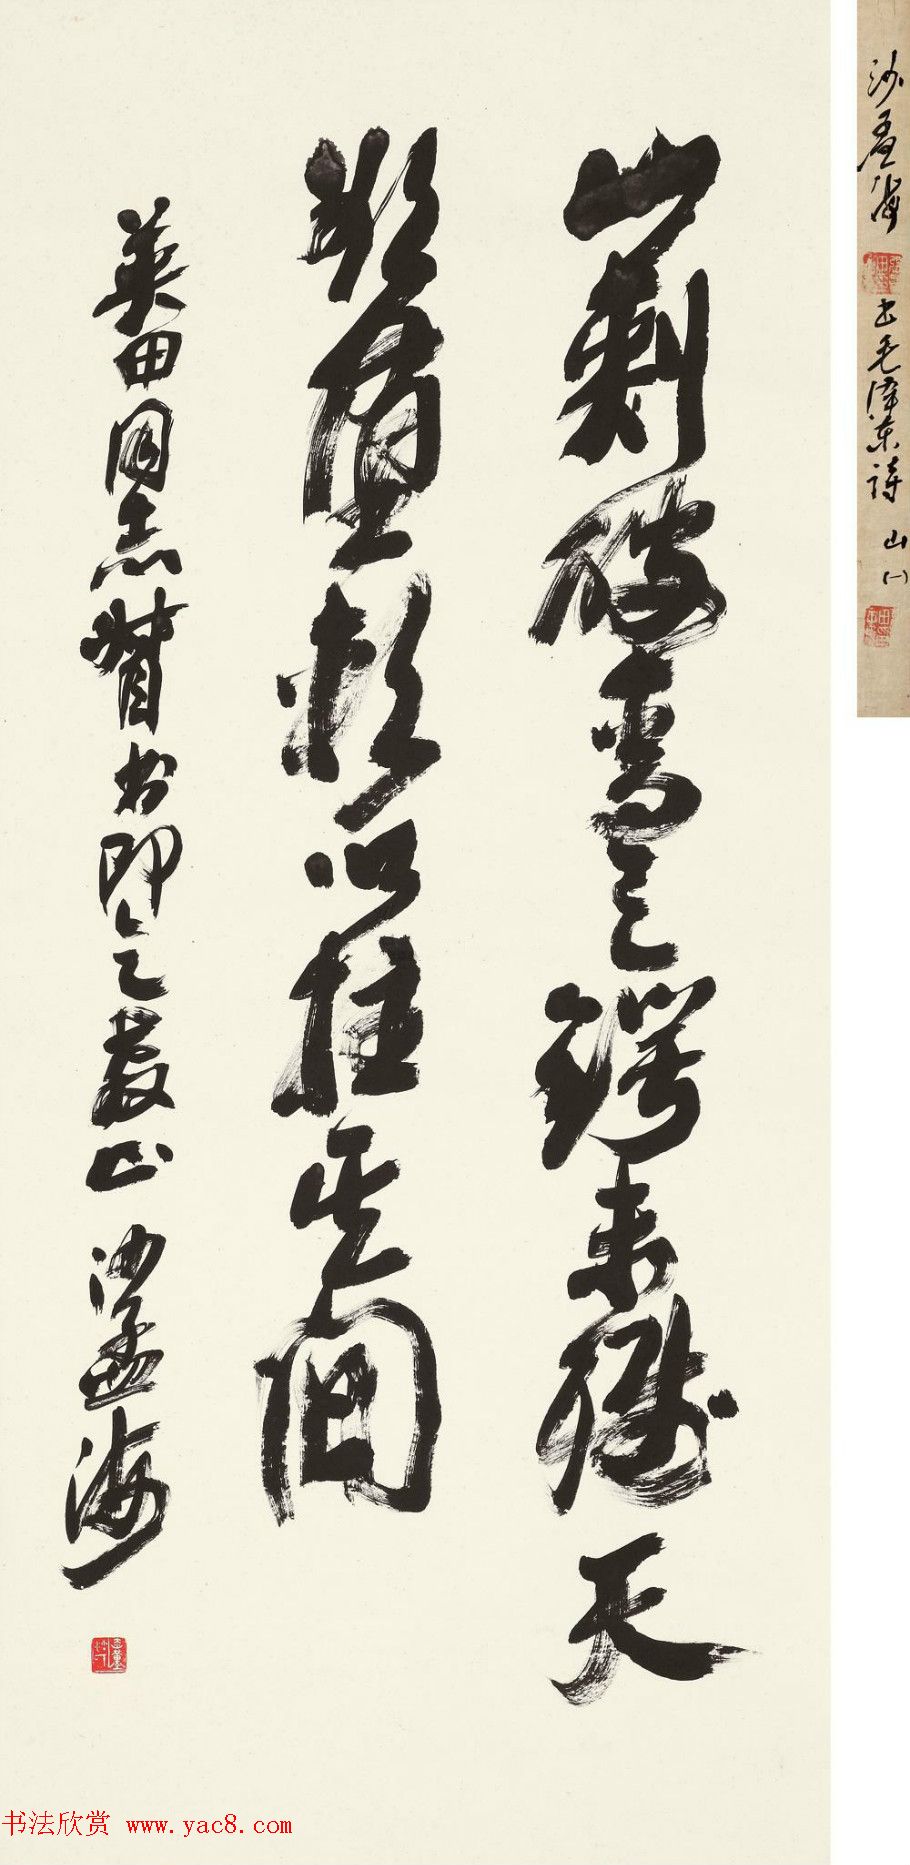 山刺破青天鍔未殘天
欲墮賴以拄其間
英田同志督书即乞教正 沙孟海
沙孟海
书毛泽东诗 山(一)
书法欣赏 www.yac8.com